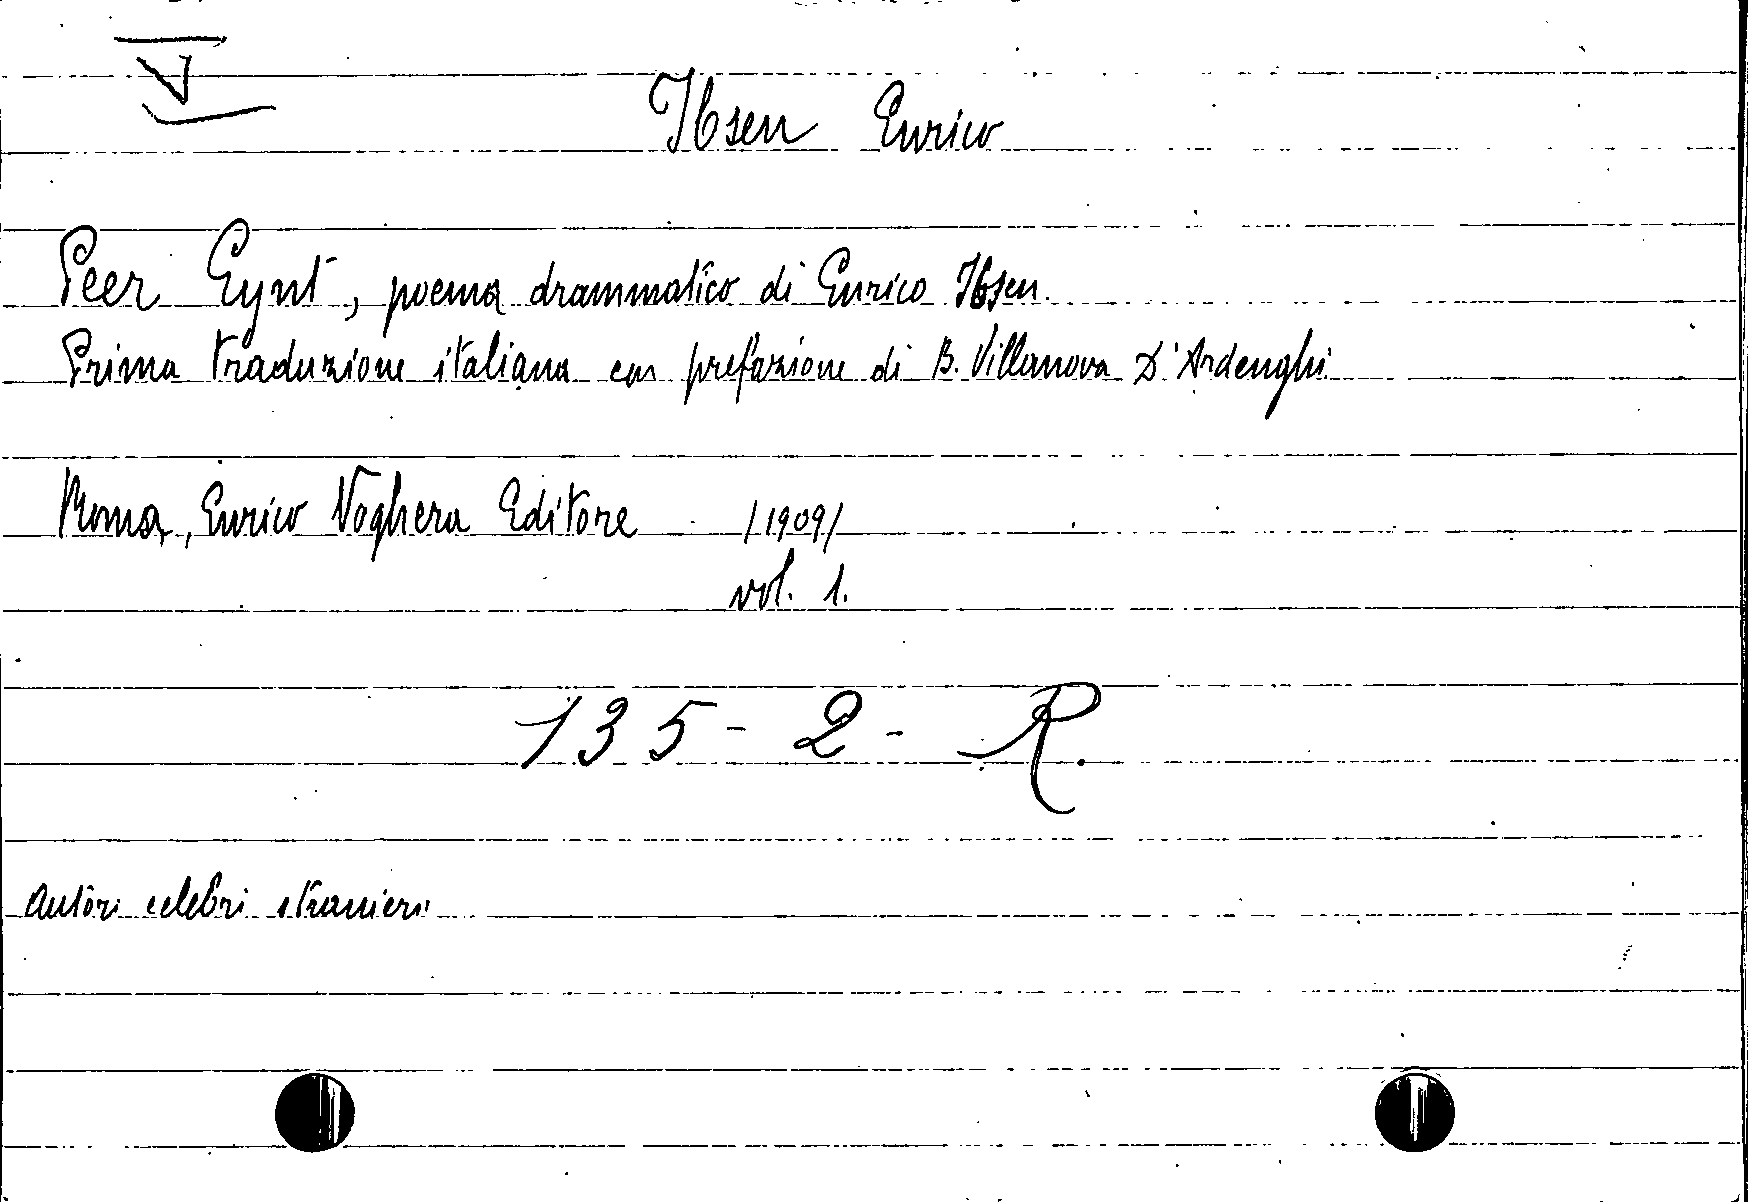 V
Ibsen Enrico
Peer Gynt, poema drammatico di Enrico Ibsen.
Prima traduzione italiana con prefazione di B. Villanova D'Ardenghi
Roma, Enrico Voghera Editore /1909/
vol. 1.
135 - 2 - R.
Autori celebri stranieri